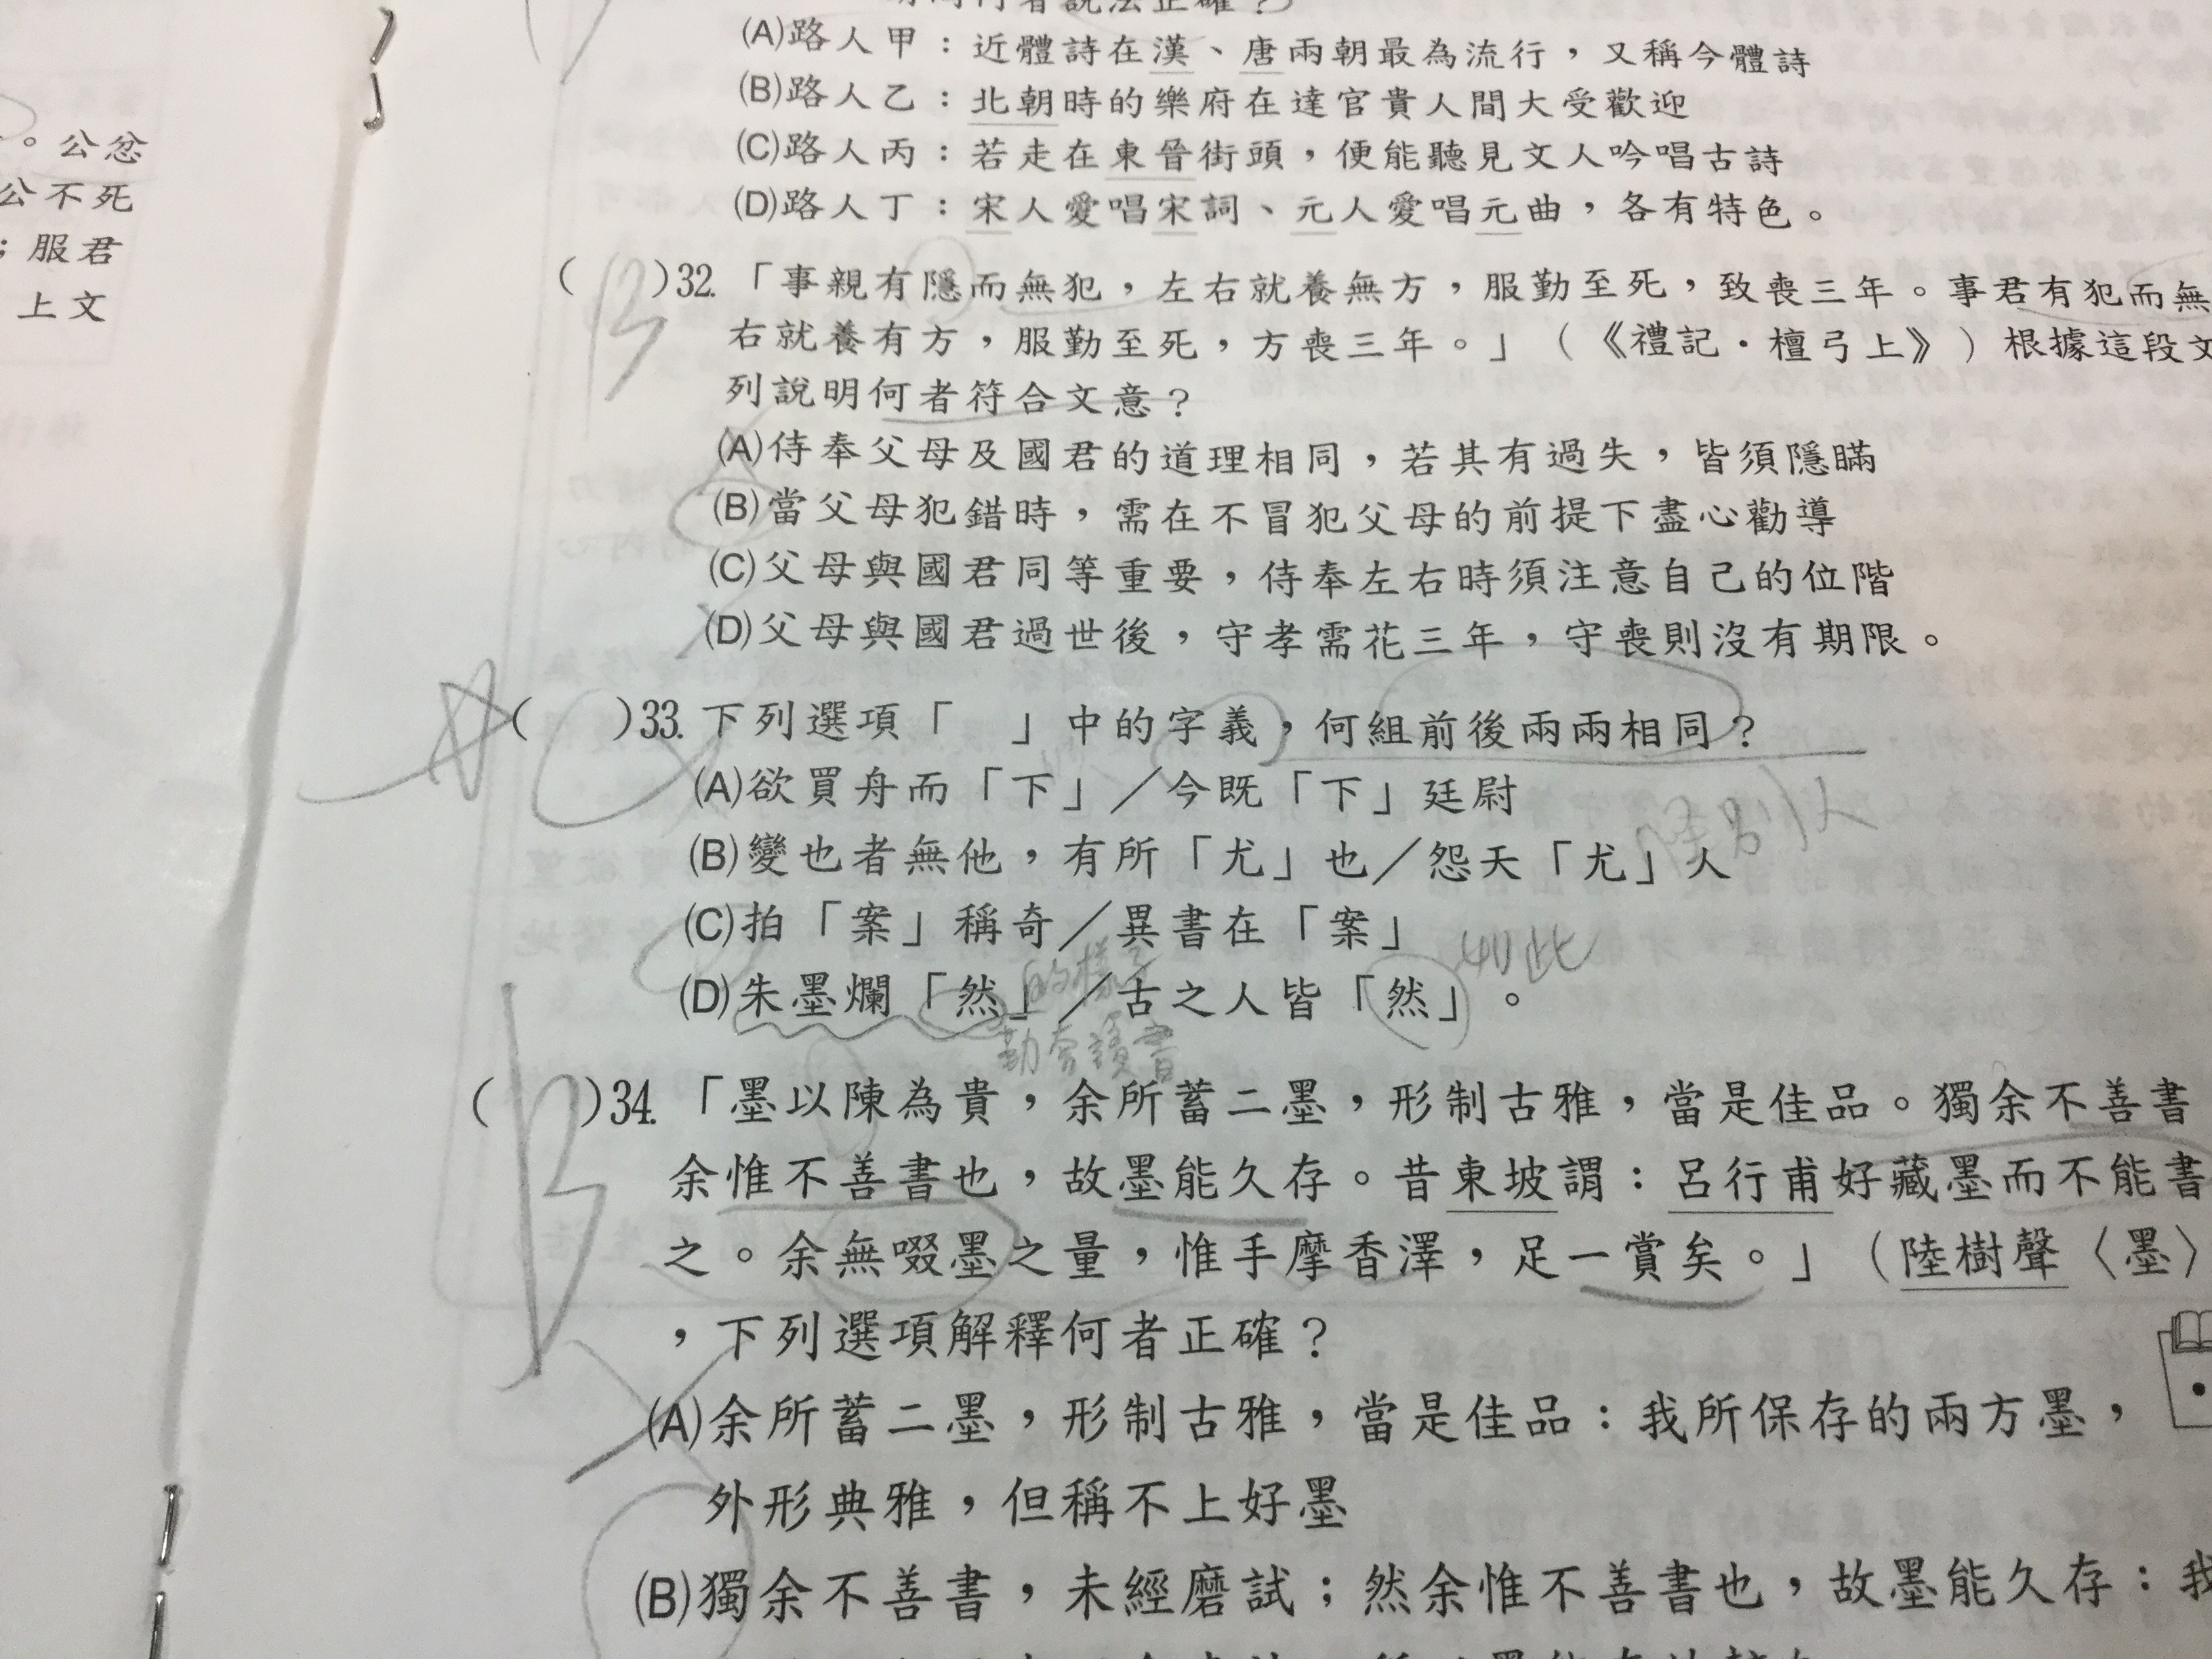 。公忿
公不死
；服君
上文
(A)路人甲：近體詩在漢、唐兩朝最為流行，又稱今體詩
(B)路人乙：北朝時的樂府在達官貴人間大受歡迎
(C)路人丙：若走在東晉街頭，便能聽見文人吟唱古詩
(D)路人丁：宋人愛唱宋詞、元人愛唱元曲，各有特色。
( B )32.「事親有隱而無犯，左右就養無方，服勤至死，致喪三年。事君有犯而無
右就養有方，服勤至死，方喪三年。」（《禮記・檀弓上》）根據這段文
列說明何者符合文意？
(A)侍奉父母及國君的道理相同，若其有過失，皆須隱瞞
(B)當父母犯錯時，需在不冒犯父母的前提下盡心勸導
(C)父母與國君同等重要，侍奉左右時須注意自己的位階
(D)父母與國君過世後，守孝需花三年，守喪則沒有期限。
( )33.下列選項「　」中的字義，何組前後兩兩相同？
(A)欲買舟而「下」／今既「下」廷尉
(B)變也者無他，有所「尤」也／怨天「尤」人
(C)拍「案」稱奇／異書在「案」
的樣子
如此
(D)朱墨爛「然」／古之人皆「然」。
勤奮讀書
( B )34.「墨以陳為貴，余所蓄二墨，形制古雅，當是佳品。獨余不善書
余惟不善書也，故墨能久存。昔東坡謂：呂行甫好藏墨而不能書
之。余無啜墨之量，惟手摩香澤，足一賞矣。」（陸樹聲〈墨〉
，下列選項解釋何者正確？
(A)余所蓄二墨，形制古雅，當是佳品：我所保存的兩方墨，
外形典雅，但稱不上好墨
(B)獨余不善書，未經磨試；然余惟不善書也，故墨能久存：我